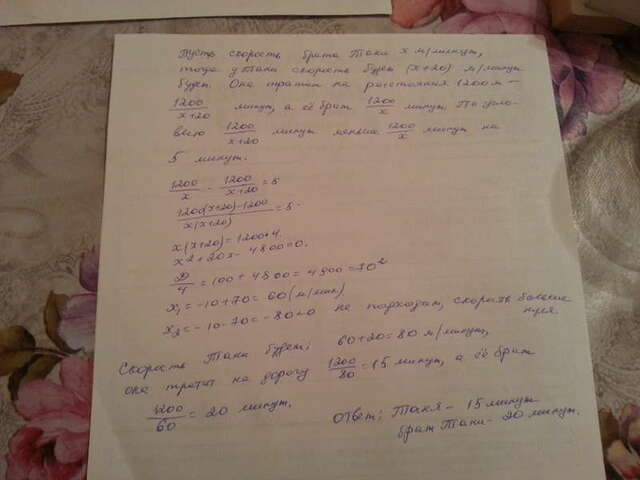 Пусть скорость брата Тани x м/минут,
тогда у Тани скорость будет (x+20) м/минут
будет. Она тратит на расстояния 1200м –
1200/x+20 минут, а её брат 1200/x минут. По усло-
вию 1200/x+20 минут меньше 1200/x минут на
5 минут.
1200/x - 1200/x+20 = 5
1200(x+20)-1200/x(x+20) = 5.
x(x+20)=1200*4.
x2+20x-4800=0.
D/4 = 100+4800=4900=70²
x₁=-10+70=60(м/мин)
x₂=-10-70=-80<0 не подходит, скорость больше
нуля
Скорость Тани будет; 60+20=80 м/минут,
она тратит на дорогу 1200/80=15 минут, а её брат
1200/60=20 минут.
Ответ; Таня- 15 минут
брат Тани- 20 минут.